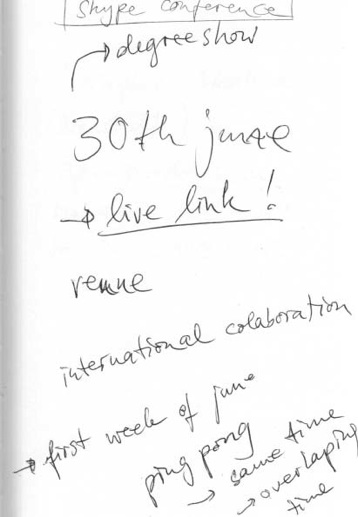 Skype conference
→ degree show
30th june
→ live link!
venue
international colaboration
→ first week of june
ping pong
→ same time
→ overlaping
time